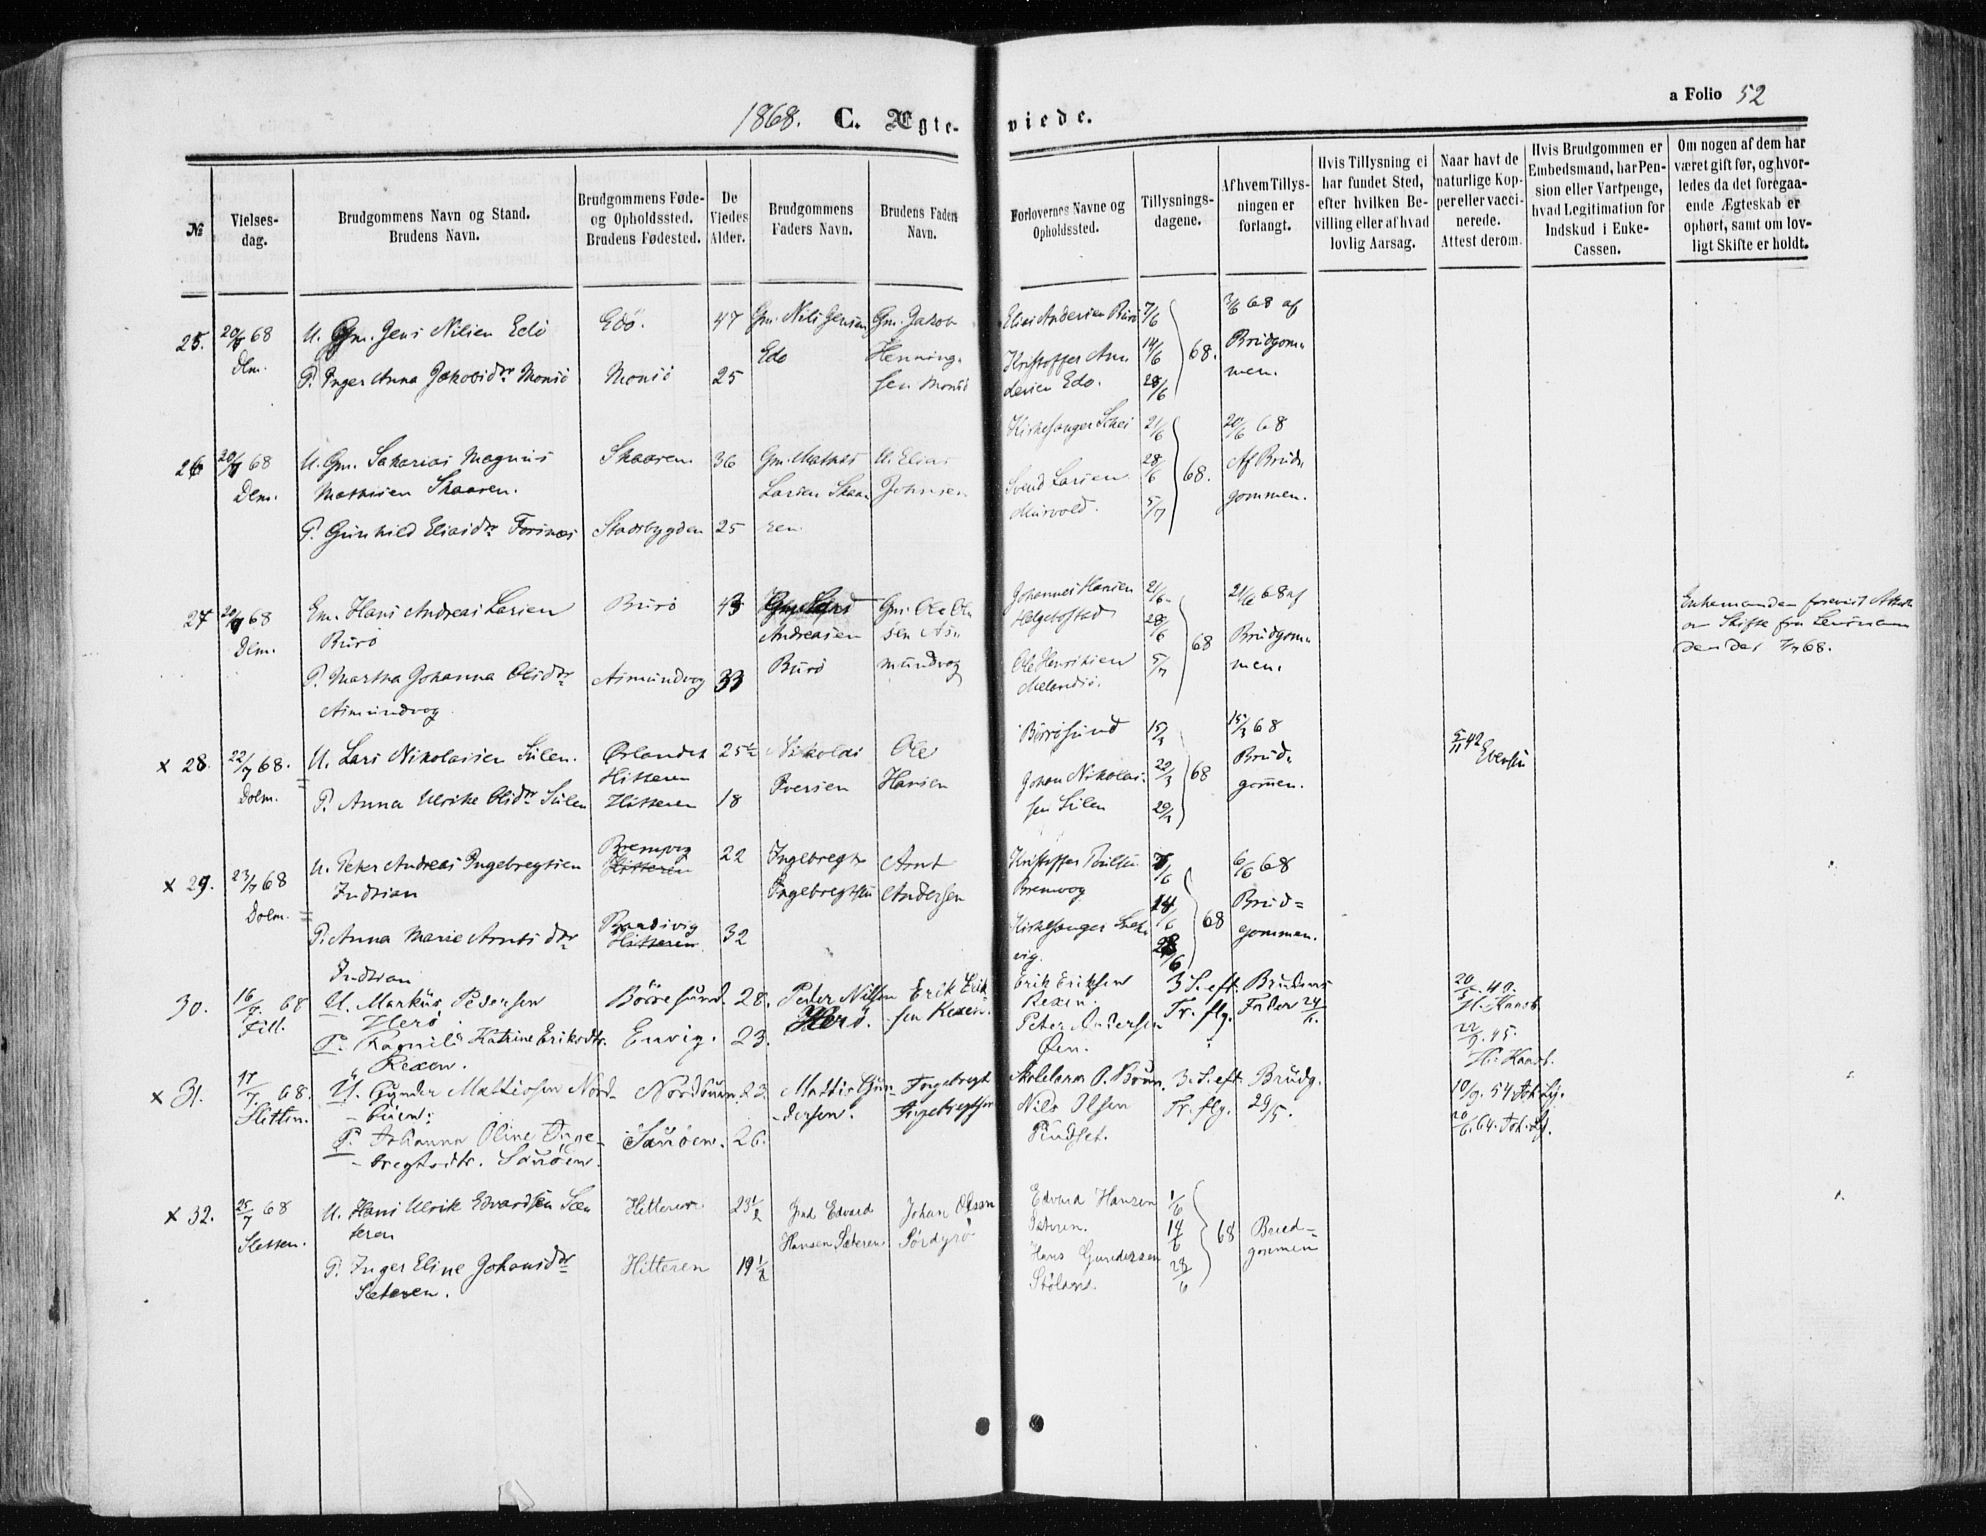 1868. C. Ægteviede.
a Folio 52
№
Vielses-
dag.
Brudgommens Navn og Stand.
Brudens Navn.
Brudgommens Føde-
og Opholdssted.
Brudens Fødested.
De
Viedes
Alder.
Brudgommens
Faders Navn.
Brudens Faders
Navn.
Forlovernes Navne og
Opholdssted.
Tillysnings-
dagene.
Af hvem Tillys-
ningen er
forlangt.
Hvis Tillysning ei
har fundet Sted,
efter hvilken Be-
villing eller af hvad
lovlig Aarsag.
Naar havt de
naturlige Kop-
per eller vacci-
nerede.
Attest derom.
Hvis Brudgommen er
Embedsmand, har Pen-
sion eller Vartpenge,
hvad Legitimation for
Indskud i Enke-
Cassen.
Om nogen af dem har
været gift før, og hvor-
ledes da det foregaa-
ende Ægteskab er
ophørt, samt om lov-
ligt Skifte er holdt.
25.
20/7 68
Dlm.
U. Gm. Jens Nilsen Edö
P. Inger Anna Jakobsdr Monsö
Edö.
Monsö
47
25
Gm. Nils Jensen
Edö
Gm. Jakob
Henning-
sen Monsö
Elias Andersen Burö
Kristoffer An-
dersen Edö.
7/6
14/6
28/6
68.
3/6 68 af
Brudgom-
men.
26
20/7 68
Dlm.
U. Gm. Sakarias Magnus
Mathisen Skaaren.
P. Gunhild Eliasdr Forsnæs
Skaaren
Stadsbygden
36
25
Gm. Mathis
Larsen Skaa-
ren
U. Elias
Johnsen
Kirkesanger Schei
Svend Larsen
21/6
28/6
5/7
68.
20/6 68
Af Brud-
gommen.
27
20/7 68
Dlm.
Em. Hans Andreas Larsen
Burö
P. Martha Johanna Olsdr
Asmundvog
Burö
Asmundvog
43
33
Andreasen
Burö
Gm. Ole Ol-
sen As-
mundvog
Johannes Hansen
Helgebostad
Ole Henriksen
Melandsö.
21/6
28/6
5/7
68
21/6 68 af
Brudgom-
men.
Enkemanden forevist Attest
om Skifte fra Lensmanden
dat. 7/7 68.
x 28.
22/7 68.
Dolm.
U. Lars Nikolaisen Sulen.
P. Anna Ulrike Olsdr Sulen
Ørlandet
Hitteren
Hitteren
25½
18
Nikolai
Iversen
Ole
Hansen
Börrösund
Johan Nikolai-
sen Sulen
15/3
22/3
29/3
68
15/3 68
Brud-
gommen.
5/11 42
x 29.
23/7 68
Dolm.
U. Peter Andreas Ingebregtsen
Indrian
P. Anna Marie Arntsdr
Indrian
Bremvog
Hitteren
Hitteren
22
32
Ingebregt
Ingebregtsen
Arnt
Andersen
Bremvog
Kirkesanger
vig.
7/6
14/6
28/6
68
6/6 68
Brud=
gommen.
30.
16/7 68
Fill.
U. Markus Pedersen
Herö
P. Ragnild Katrine Eriksdtr.
Rexen.
Börresund
Envig.
28.
23.
Peder Nilsen
Herö.
Erik Erik-
sen Rexen.
Erik Eriksen
Rexen.
Peter Andersen
Øen.
3 S. eft.
Tr. flg.
Brudens
Fader 24/5.
20/5 40.
22/9 45.
x 31.
17/7 68.
Slettn.
U. Gunder Mathiesen Nord-
buen.
P. Johanna Oline Inge-
bregtsdtr. Sauöen.
Nordbuen.
Sauöen.
23.
26.
Mattis Gun-
dersen.
Ingebregt
Ingebregtsen
Skolelærer O. Bruun.
Nils Olsen
3. S. eft
Tr. flg.
Brudg.
29/5.
10/9. 54
20/6. 64.
x 32.
25/7 68
Sletten.
U. Hans Ulrik Edvardsen Sæ-
teren
P. Inger Eline Johansdr
Sæteren.
Hitteren
Hitteren
23½
19½
Gmd Edvard
Hansen Sæteren
Johan Olsen
Sördyrö
Edvard Hansen
Sæteren.
Hans Gundersen
Stölan.
1/6
14/6
28/6
68
Brud=
gommen